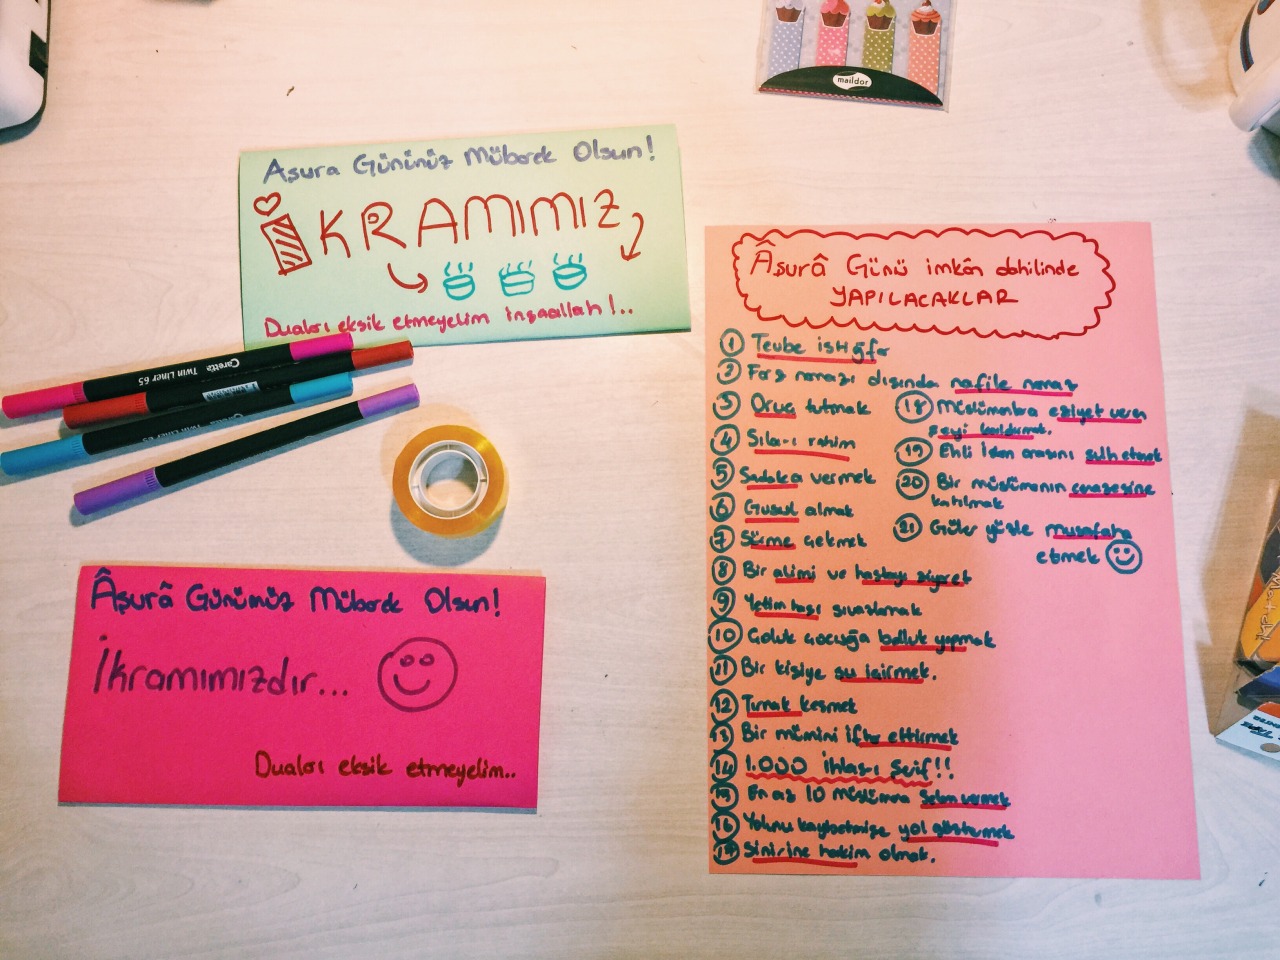 maildor
Aşura Gününüz Mübarek Olsun!
İKRAMIMIZ
Duaları eksik etmeyelim inşaallah!..
Caretta Twin Liner 65
Âşurâ Günümüz Mübarek Olsun!
İkramımızdır...
Duaları eksik etmeyelim..
Âşurâ Günü imkân dahilinde
YAPILACAKLAR
1 Tevbe istiğfar
2 Farz namazı dışında nafile namaz
3 Oruç tutmak
4 Sıla-ı rahim
5 Sadaka vermek
6 Gusül almak
7 Sürme çekmek
8 Bir alimi ve hastayı ziyaret
9 Yetim başı sıvazlamak
10 Çoluk çocuğa bolluk yapmak
11 Bir kişiye su içirmek.
12 Tırnak kesmek
13 Bir mümini iftar ettirmek
14 1.000 İhlası Şerif!!
15 En az 10 müslümana selam vermek
16 Yolunu kaybetmişe yol göstermek
17 Sinirine hakim olmak.
18 Müslümanlara eziyet veren
şeyi kaldırmak.
19 Ehli İslam arasını sulh etmek
20 Bir müslümanın cenazesine
katılmak
21 Güler yüzle musafaha
etmek